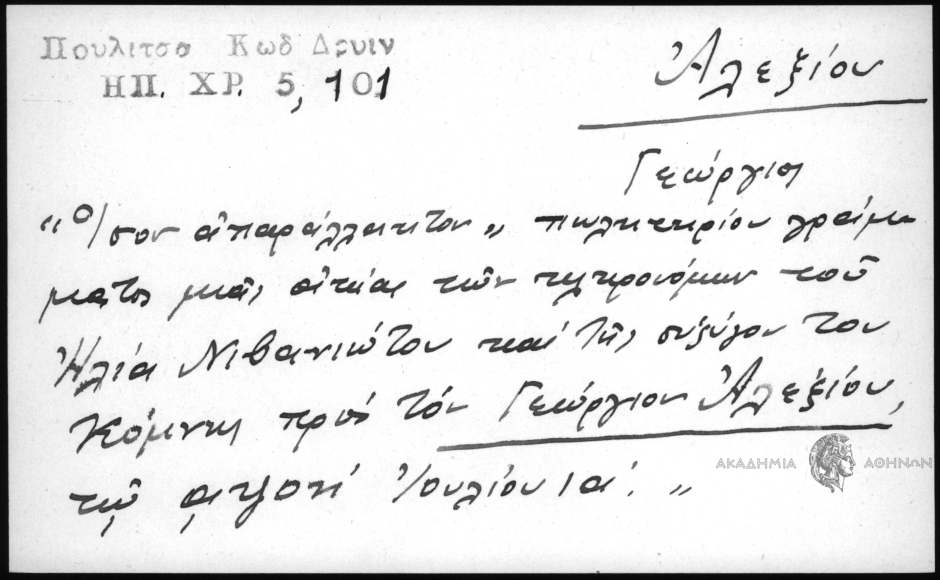 Πουλιτσα Κωδ Δρυιν
ΗΠ. ΧΡ. 5, 101
Ἀλεξίου
Γεώργιος
"Ἴσον ἀπαράλλακτον" πωλητηρίου γράμ-
ματος μιᾶς οἰκίας τῶν κληρονόμων τοῦ
Ἠλία Νιβανιώτου καί τῆς συζύγου του
Κόμνης πρός τόν Γεώργιον Ἀλεξίου,
τῷ αψον΄ Ἰουλίου ια΄. "
ΑΚΑΔΗΜΙΑ ΑΘΗΝΩΝ